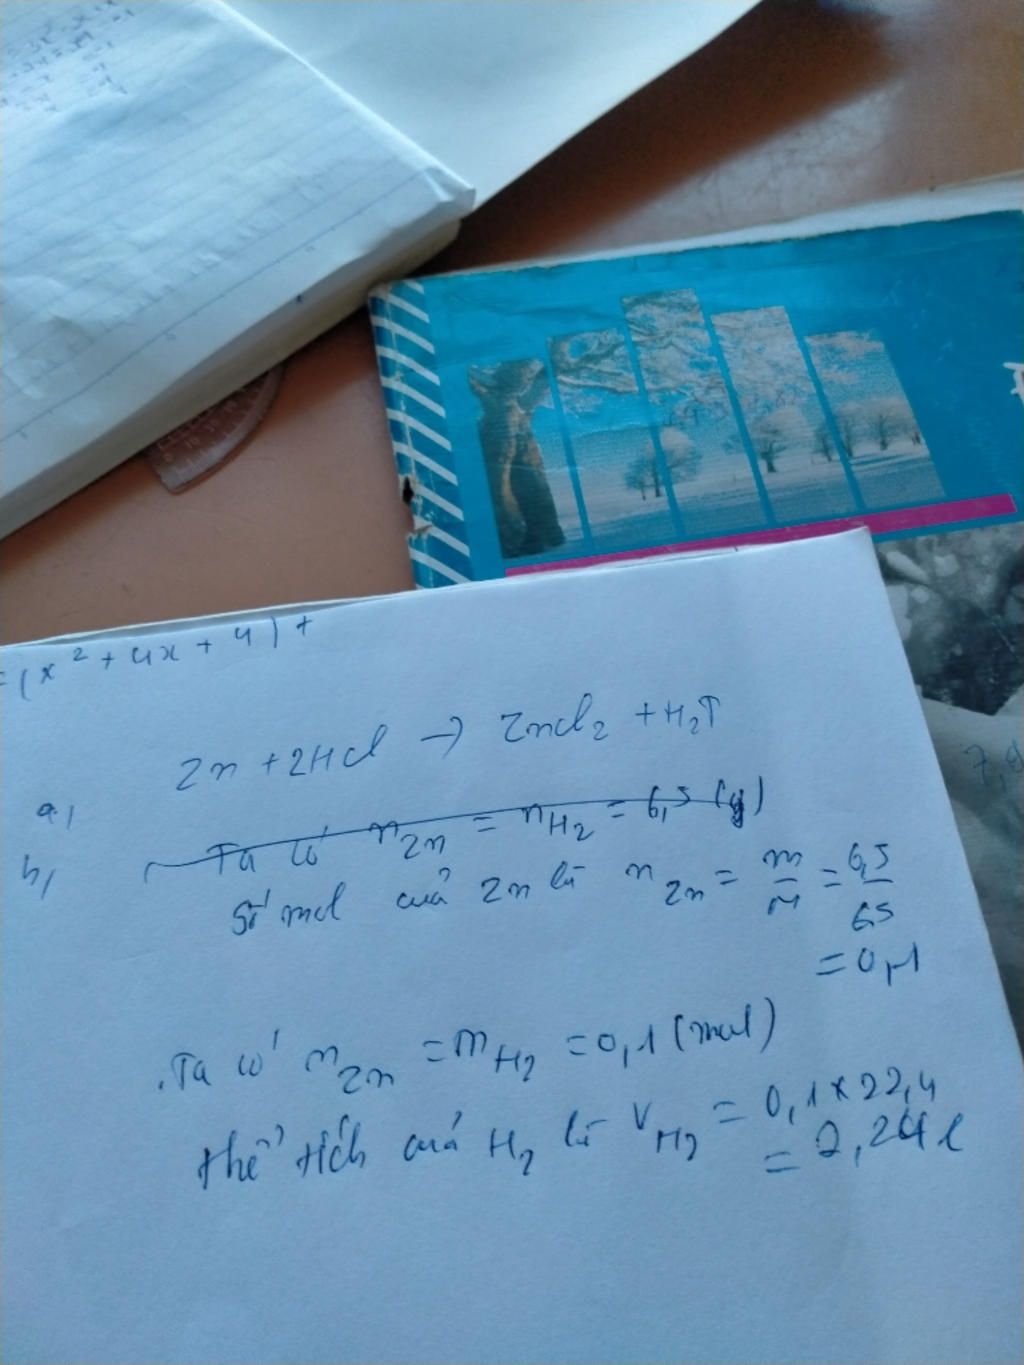 =(x² + 4x + 4) +
Zn + 2HCl → ZnCl₂ + H₂↑
a,
Ta có n_Zn = n_H₂ = 6,5 (g)
b,
Số mol của Zn là n_Zn = m/M = 6,5/65
= 0,1
. Ta có n_Zn = n_H₂ = 0,1 (mol)
thể tích của H₂ là V_H₂ = 0,1 x 22,4
= 2,24 l
7,9